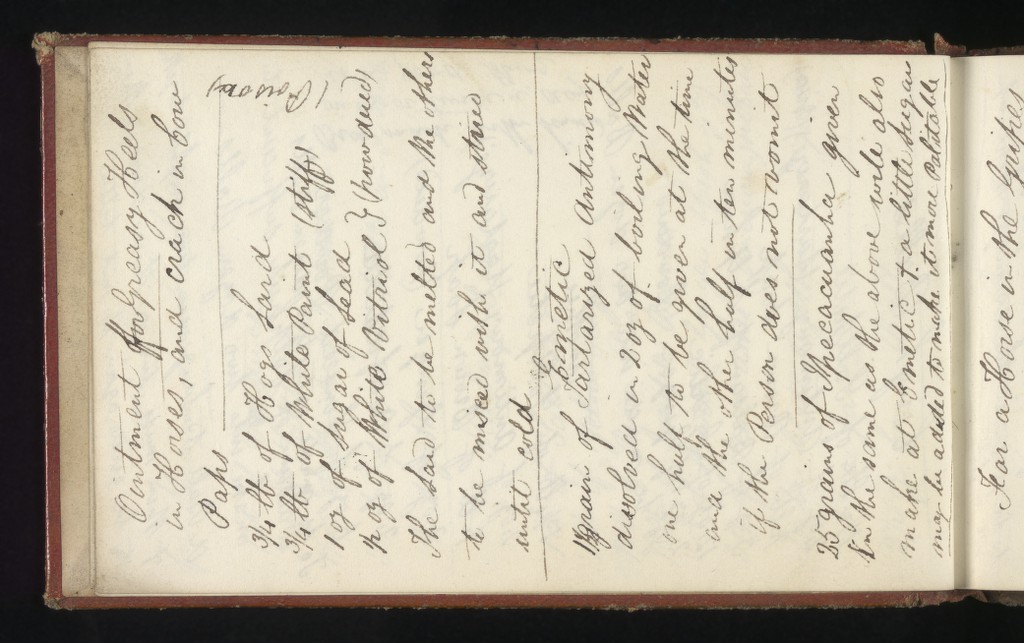 Ointment for Greasy Heels
in Horses, and crack in Cow
Paps
(Poison)
3/4 lb of Hogs Lard
3/4 lb of White Paint (stiff)
1 oz of Sugar of Lead }
1/2 oz of White Vitriol } (powdered)
The Lard to be melted and the others
to be mixed with it and stired
until cold
Emetic
grain of Tartarized Antimony
dissolved in 2 oz of boiling Water
one half to be given at the time
and the other half in ten minutes
if the Person does not vomit
25 grains of Ipecacuanha given
in the same as the above will also
make at Emetic & a little sugar
may be added to make it more Palitable
For a Horse in the Gripes